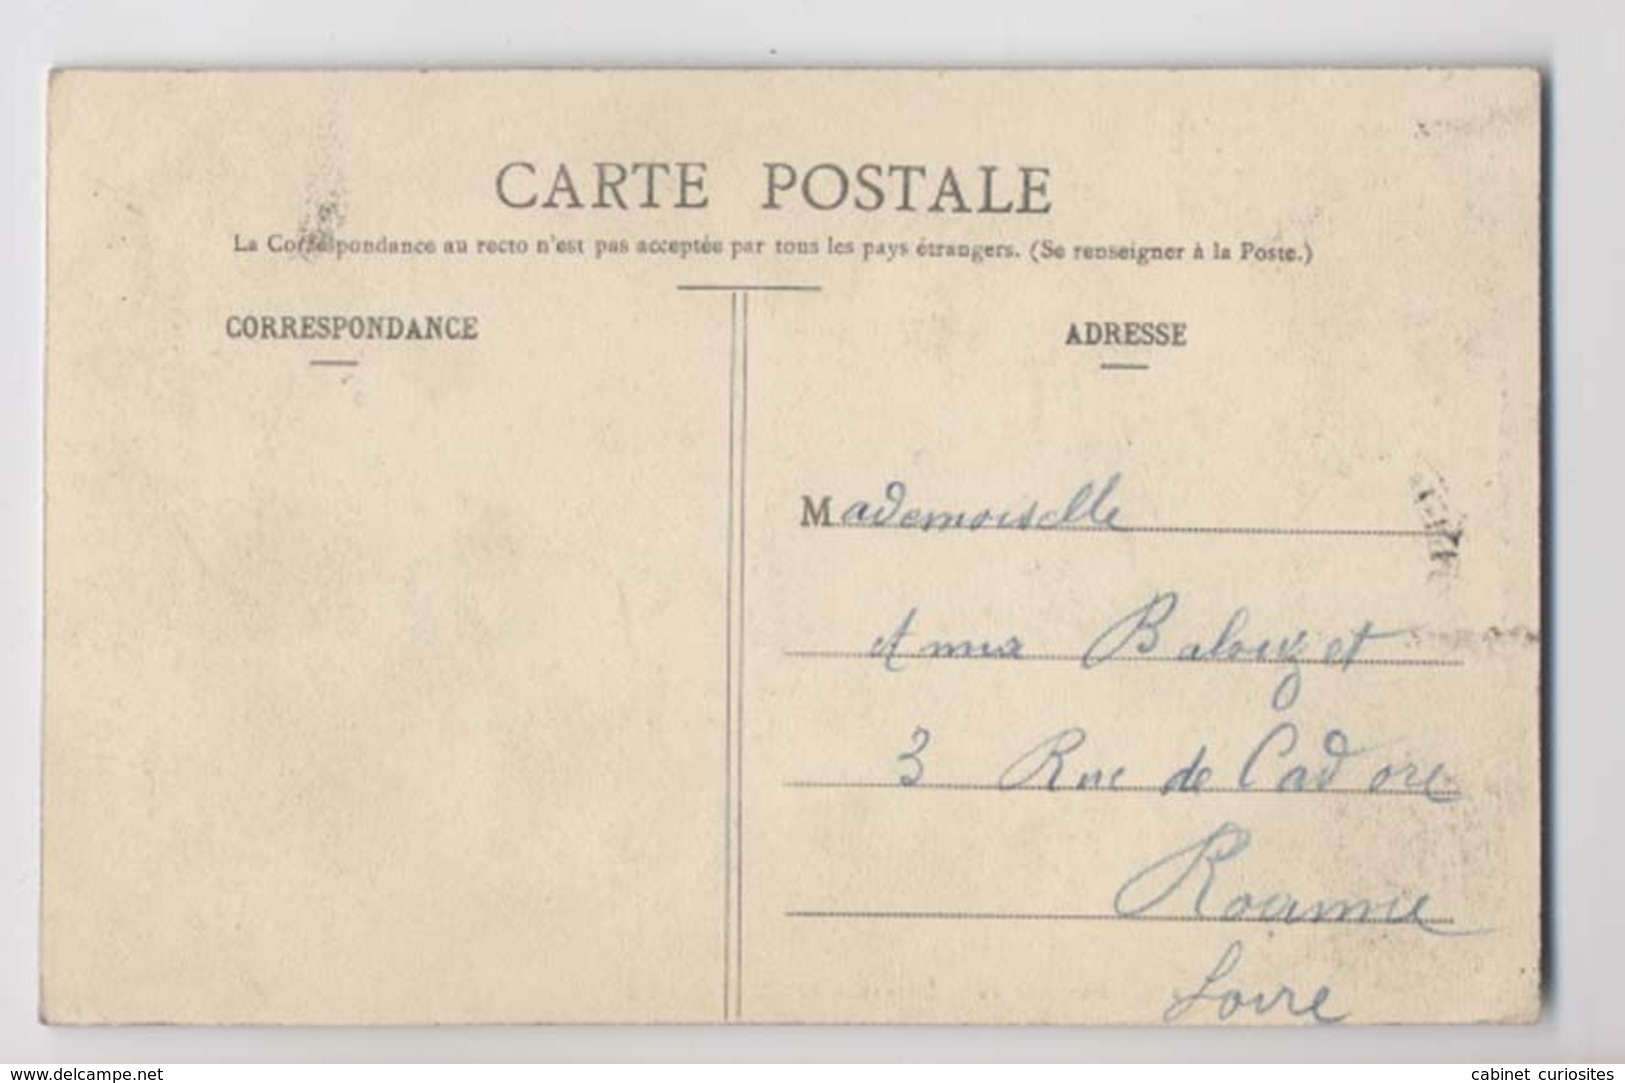 CARTE POSTALE
La Correspondance au recto n'est pas acceptée par tous les pays étrangers. (Se renseigner à la Poste.)
CORRESPONDANCE
ADRESSE
Mademoiselle
Anna Balouzet
3 Rue de Cadore
Roanne
Loire
www.delcampe.net
cabinet curiosites